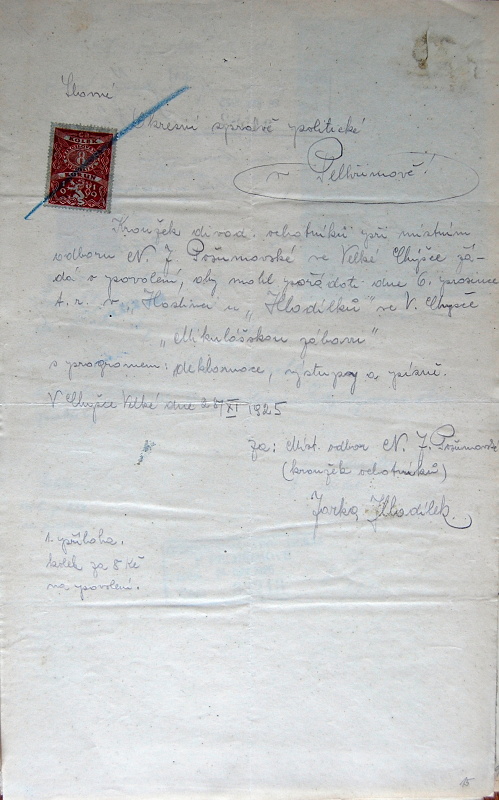 Slavné
Okresní správě politické
v Pelhřimově!
Kroužek divad. ochotníků při místním
odboru N. J. Pošumavské ve Velké Chyšce žá-
dá o povolení, aby mohl pořádati dne 6. prosince
t. r. v „Hostinci u „Hladílků" ve V. Chyšce
„Mikulášskou zábavu"
s programem: deklamace, výstupy a písně.
V Chyšce Velké dne 28/XI 1925
za: Míst. odbor N. J. Pošumavské
(kroužek ochotníků)
Jarka Hladílek
1. příloha.
kolek za 8 Kč
na povolení.
KOLEK
8
KORUN
15